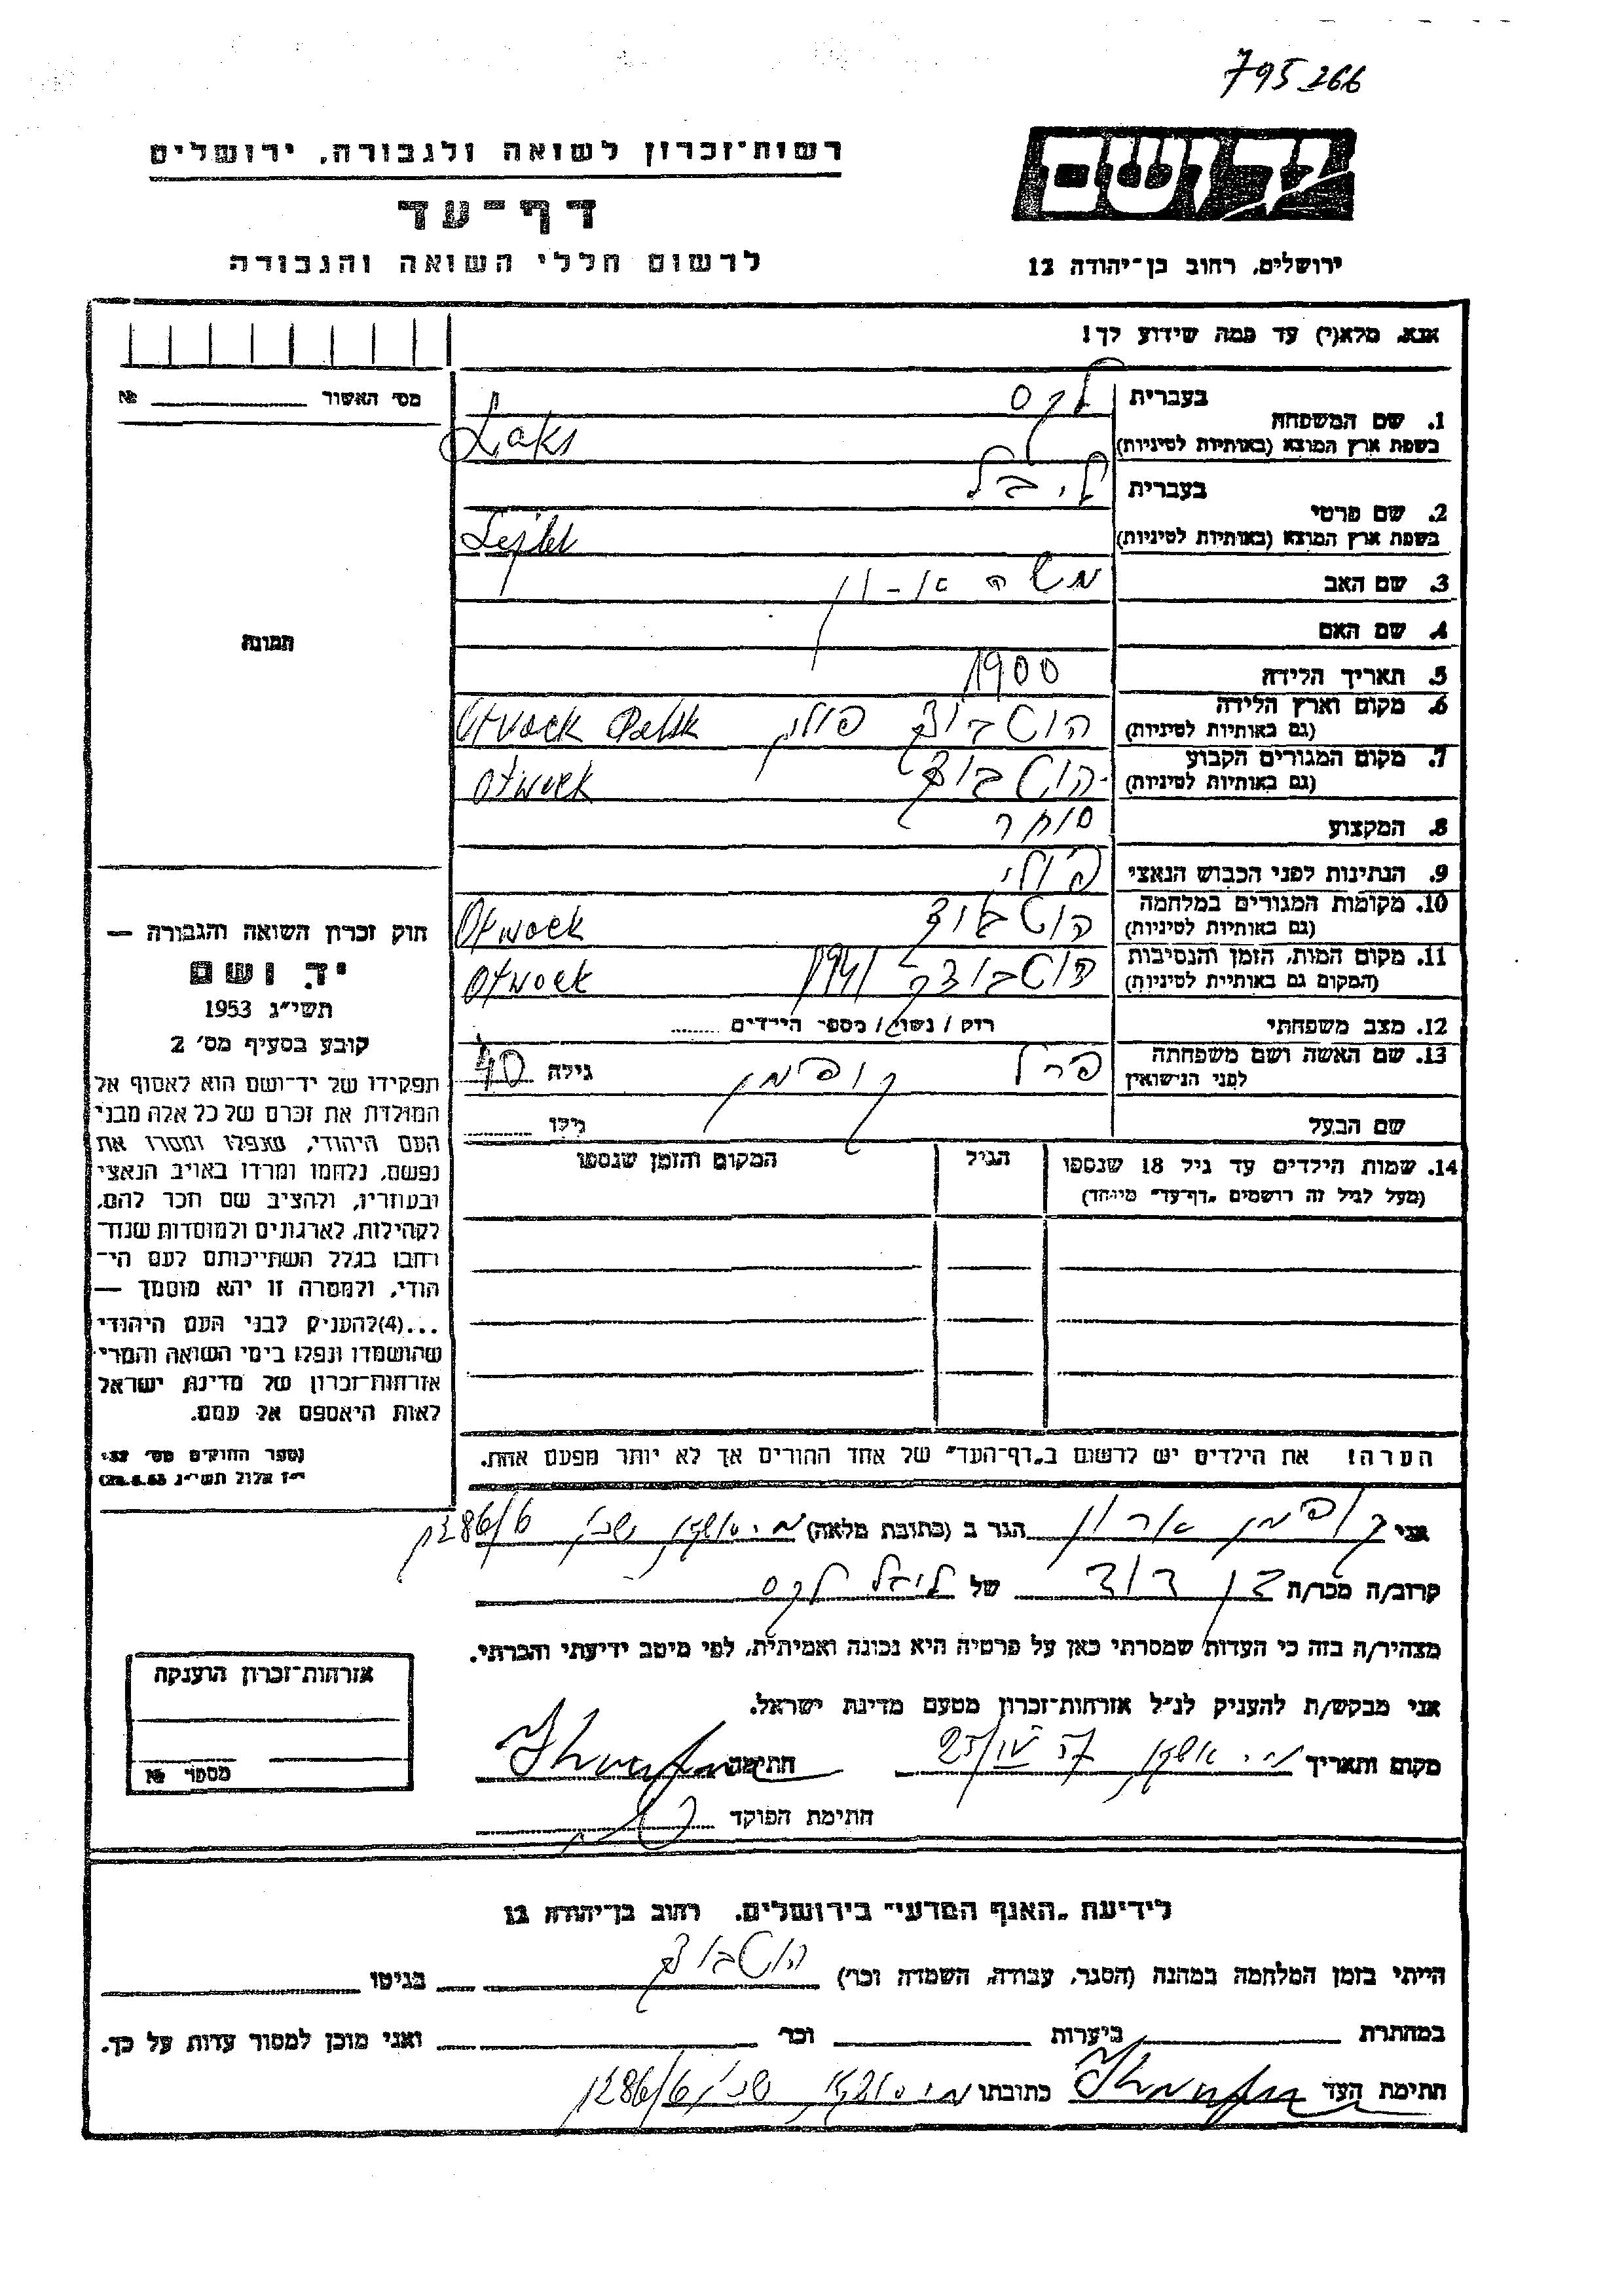 795266
רשות־זכרון לשואה ולגבורה, ירושלים
דף־עד
לרשום חללי השואה והגבורה
יד ושם
ירושלים, רחוב בן־יהודה 12
אנא, מלא(י) עד כמה שידוע לך!
מס׳ האשור №
1. שם המשפחה
בעברית לקס
בשפת ארץ המוצא (באותיות לטיניות) Laks
2. שם פרטי
בעברית ליבל
בשפת ארץ המוצא (באותיות לטיניות) Lejbl
3. שם האב משה
4. שם האם
5. תאריך הלידה 1900
6. מקום וארץ הלידה
(גם באותיות לטיניות) פולין
7. מקום המגורים הקבוע
(גם באותיות לטיניות) Otwock
8. המקצוע סוחר
9. הנתינות לפני הכבוש הנאצי פולני
10. מקומות המגורים במלחמה
(גם באותיות לטיניות) Otwock
11. מקום המות, הזמן והנסיבות
(המקום גם באותיות לטיניות) 1941 Otwock
12. מצב משפחתי רווק / נשוי / מספר הילדים
13. שם האשה ושם משפחתה
לפני הנישואין קופמן גילה 40
שם הבעל גילו
14. שמות הילדים עד גיל 18 שנספו
(מעל לגיל זה רושמים „דף־עד״ מיוחד)
הגיל
המקום והזמן שנספו
הערה! את הילדים יש לרשום ב„דף־העד״ של אחד ההורים אך לא יותר מפעם אחת.
תמונה
חוק זכרון השואה והגבורה —
יד ושם
תשי״ג 1953
קובע בסעיף מס׳ 2
תפקידו של יד־ושם הוא לאסוף אל
המולדת את זכרם של כל אלה מבני
העם היהודי, שנפלו ומסרו את
נפשם, נלחמו ומרדו באויב הנאצי
ובעוזריו, ולהציב שם וזכר להם,
לקהילות, לארגונים ולמוסדות שנח־
רבו בגלל השתייכותם לעם הי־
הודי, ולמטרה זו יהא מוסמך —
...(4)להעניק לבני העם היהודי
שהושמדו ונפלו בימי השואה והמרי
אזרחות־זכרון של מדינת ישראל
לאות היאספם אל עמם.
(ספר החוקים מס׳ 132
י״ז אלול תשי״ג 28.8.53)
אני קופמן אהרון הגר ב (כתובת מלאה)
קרוב/ה מכר/ה בן דוד של ליבל לקס
מצהיר/ה בזה כי העדות שמסרתי כאן על פרטיה היא נכונה ואמיתית, לפי מיטב ידיעתי והכרתי.
אני מבקש/ת להעניק לנ״ל אזרחות־זכרון מטעם מדינת ישראל.
מקום ותאריך חתימה
חתימת הפוקד
אזרחות־זכרון הוענקה
מספר №
לידיעת „האגף המדעי״ בירושלים, רחוב בן־יהודה 12
הייתי בזמן המלחמה במחנה (הסגר, עבודה, השמדה וכו׳) בגיטו
במחתרת ביערות וכו׳ ואני מוכן למסור עדות על כך.
חתימת העד כתובתו